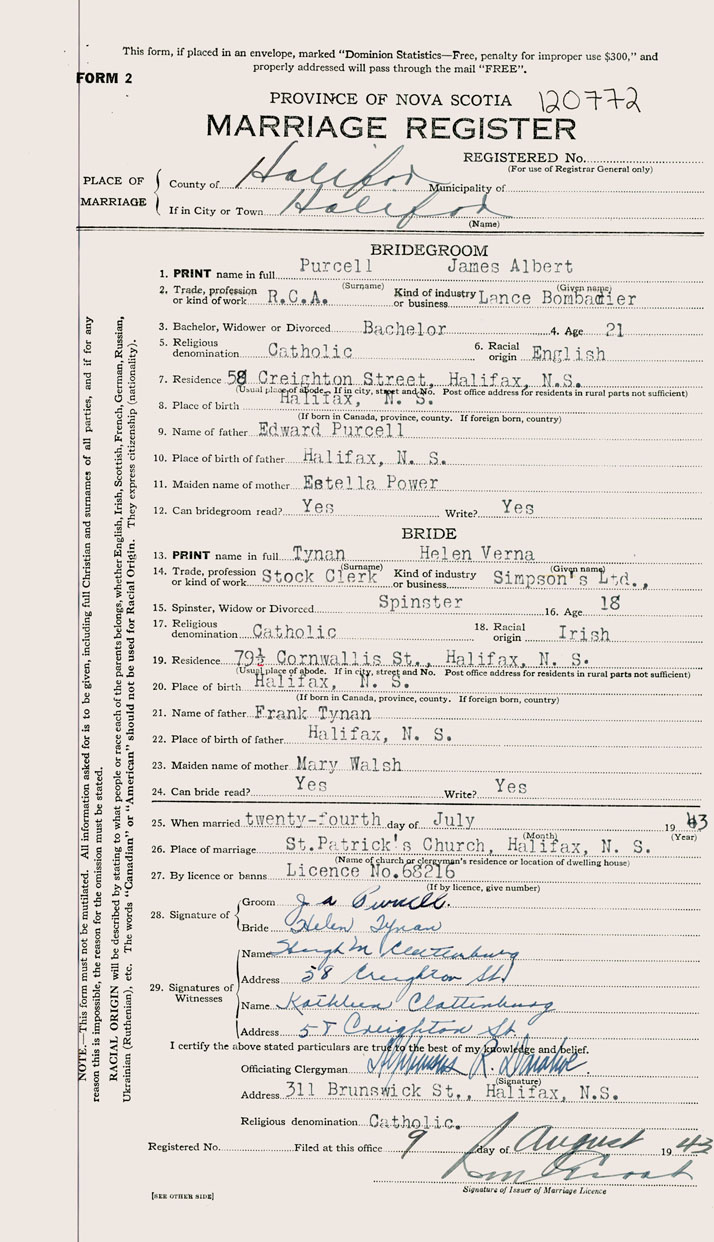 This form, if placed in an envelope, marked "Dominion Statistics—Free, penalty for improper use $300," and
properly addressed will pass through the mail "FREE".
FORM 2
PROVINCE OF NOVA SCOTIA 120772
MARRIAGE REGISTER
REGISTERED No.
(For use of Registrar General only)
PLACE OF MARRIAGE
County of Halifax Municipality of
If in City or Town Halifax
(Name)
BRIDEGROOM
1. PRINT name in full Purcell James Albert
(Surname) (Given name)
2. Trade, profession or kind of work R.C.A. Kind of industry or business Lance Bombadier
3. Bachelor, Widower or Divorced Bachelor 4. Age 21
5. Religious denomination Catholic 6. Racial origin English
7. Residence 58 Creighton Street, Halifax, N.S.
(Usual place of abode. If in city, street and No. Post office address for residents in rural parts not sufficient)
8. Place of birth Halifax, N. S.
(If born in Canada, province, county. If foreign born, country)
9. Name of father Edward Purcell
10. Place of birth of father Halifax, N. S.
11. Maiden name of mother Estella Power
12. Can bridegroom read? Yes Write? Yes
BRIDE
13. PRINT name in full Tynan Helen Verna
(Surname) (Given name)
14. Trade, profession or kind of work Stock Clerk Kind of industry or business Simpson's Ltd.,
15. Spinster, Widow or Divorced Spinster 16. Age 18
17. Religious denomination Catholic 18. Racial origin Irish
19. Residence 79½ Cornwallis St., Halifax, N. S.
(Usual place of abode. If in city, street and No. Post office address for residents in rural parts not sufficient)
20. Place of birth Halifax, N. S.
(If born in Canada, province, county. If foreign born, country)
21. Name of father Frank Tynan
22. Place of birth of father Halifax, N. S.
23. Maiden name of mother Mary Walsh
24. Can bride read? Yes Write? Yes
25. When married twenty-fourth day of July 1943
(Month) (Year)
26. Place of marriage St.Patrick's Church, Halifax, N. S.
(Name of church or clergyman's residence or location of dwelling house)
27. By licence or banns Licence No.68216
(If by licence, give number)
28. Signature of
Groom J. A. Purcell.
Bride Helen Tynan
29. Signatures of Witnesses
Name Hugh M Clattenburg
Address 58 Creighton St.
Name Kathleen Clattenburg
Address 58 Creighton St.
I certify the above stated particulars are true to the best of my knowledge and belief.
Officiating Clergyman R.
(Signature)
Address 311 Brunswick St., Halifax, N.S.
Religious denomination Catholic.
Registered No. Filed at this office 9 day of August 1943
Signature of Issuer of Marriage Licence
[SEE OTHER SIDE]
NOTE.—This form must not be mutilated. All information asked for is to be given, including full Christian and surnames of all parties, and if for any
reason this is impossible, the reason for the omission must be stated.
RACIAL ORIGIN will be described by stating to what people or race each of the parents belongs, whether English, Irish, Scottish, French, German, Russian,
Ukrainian (Ruthenian), etc. The words "Canadian" or "American" should not be used for Racial Origin. They express citizenship (nationality).